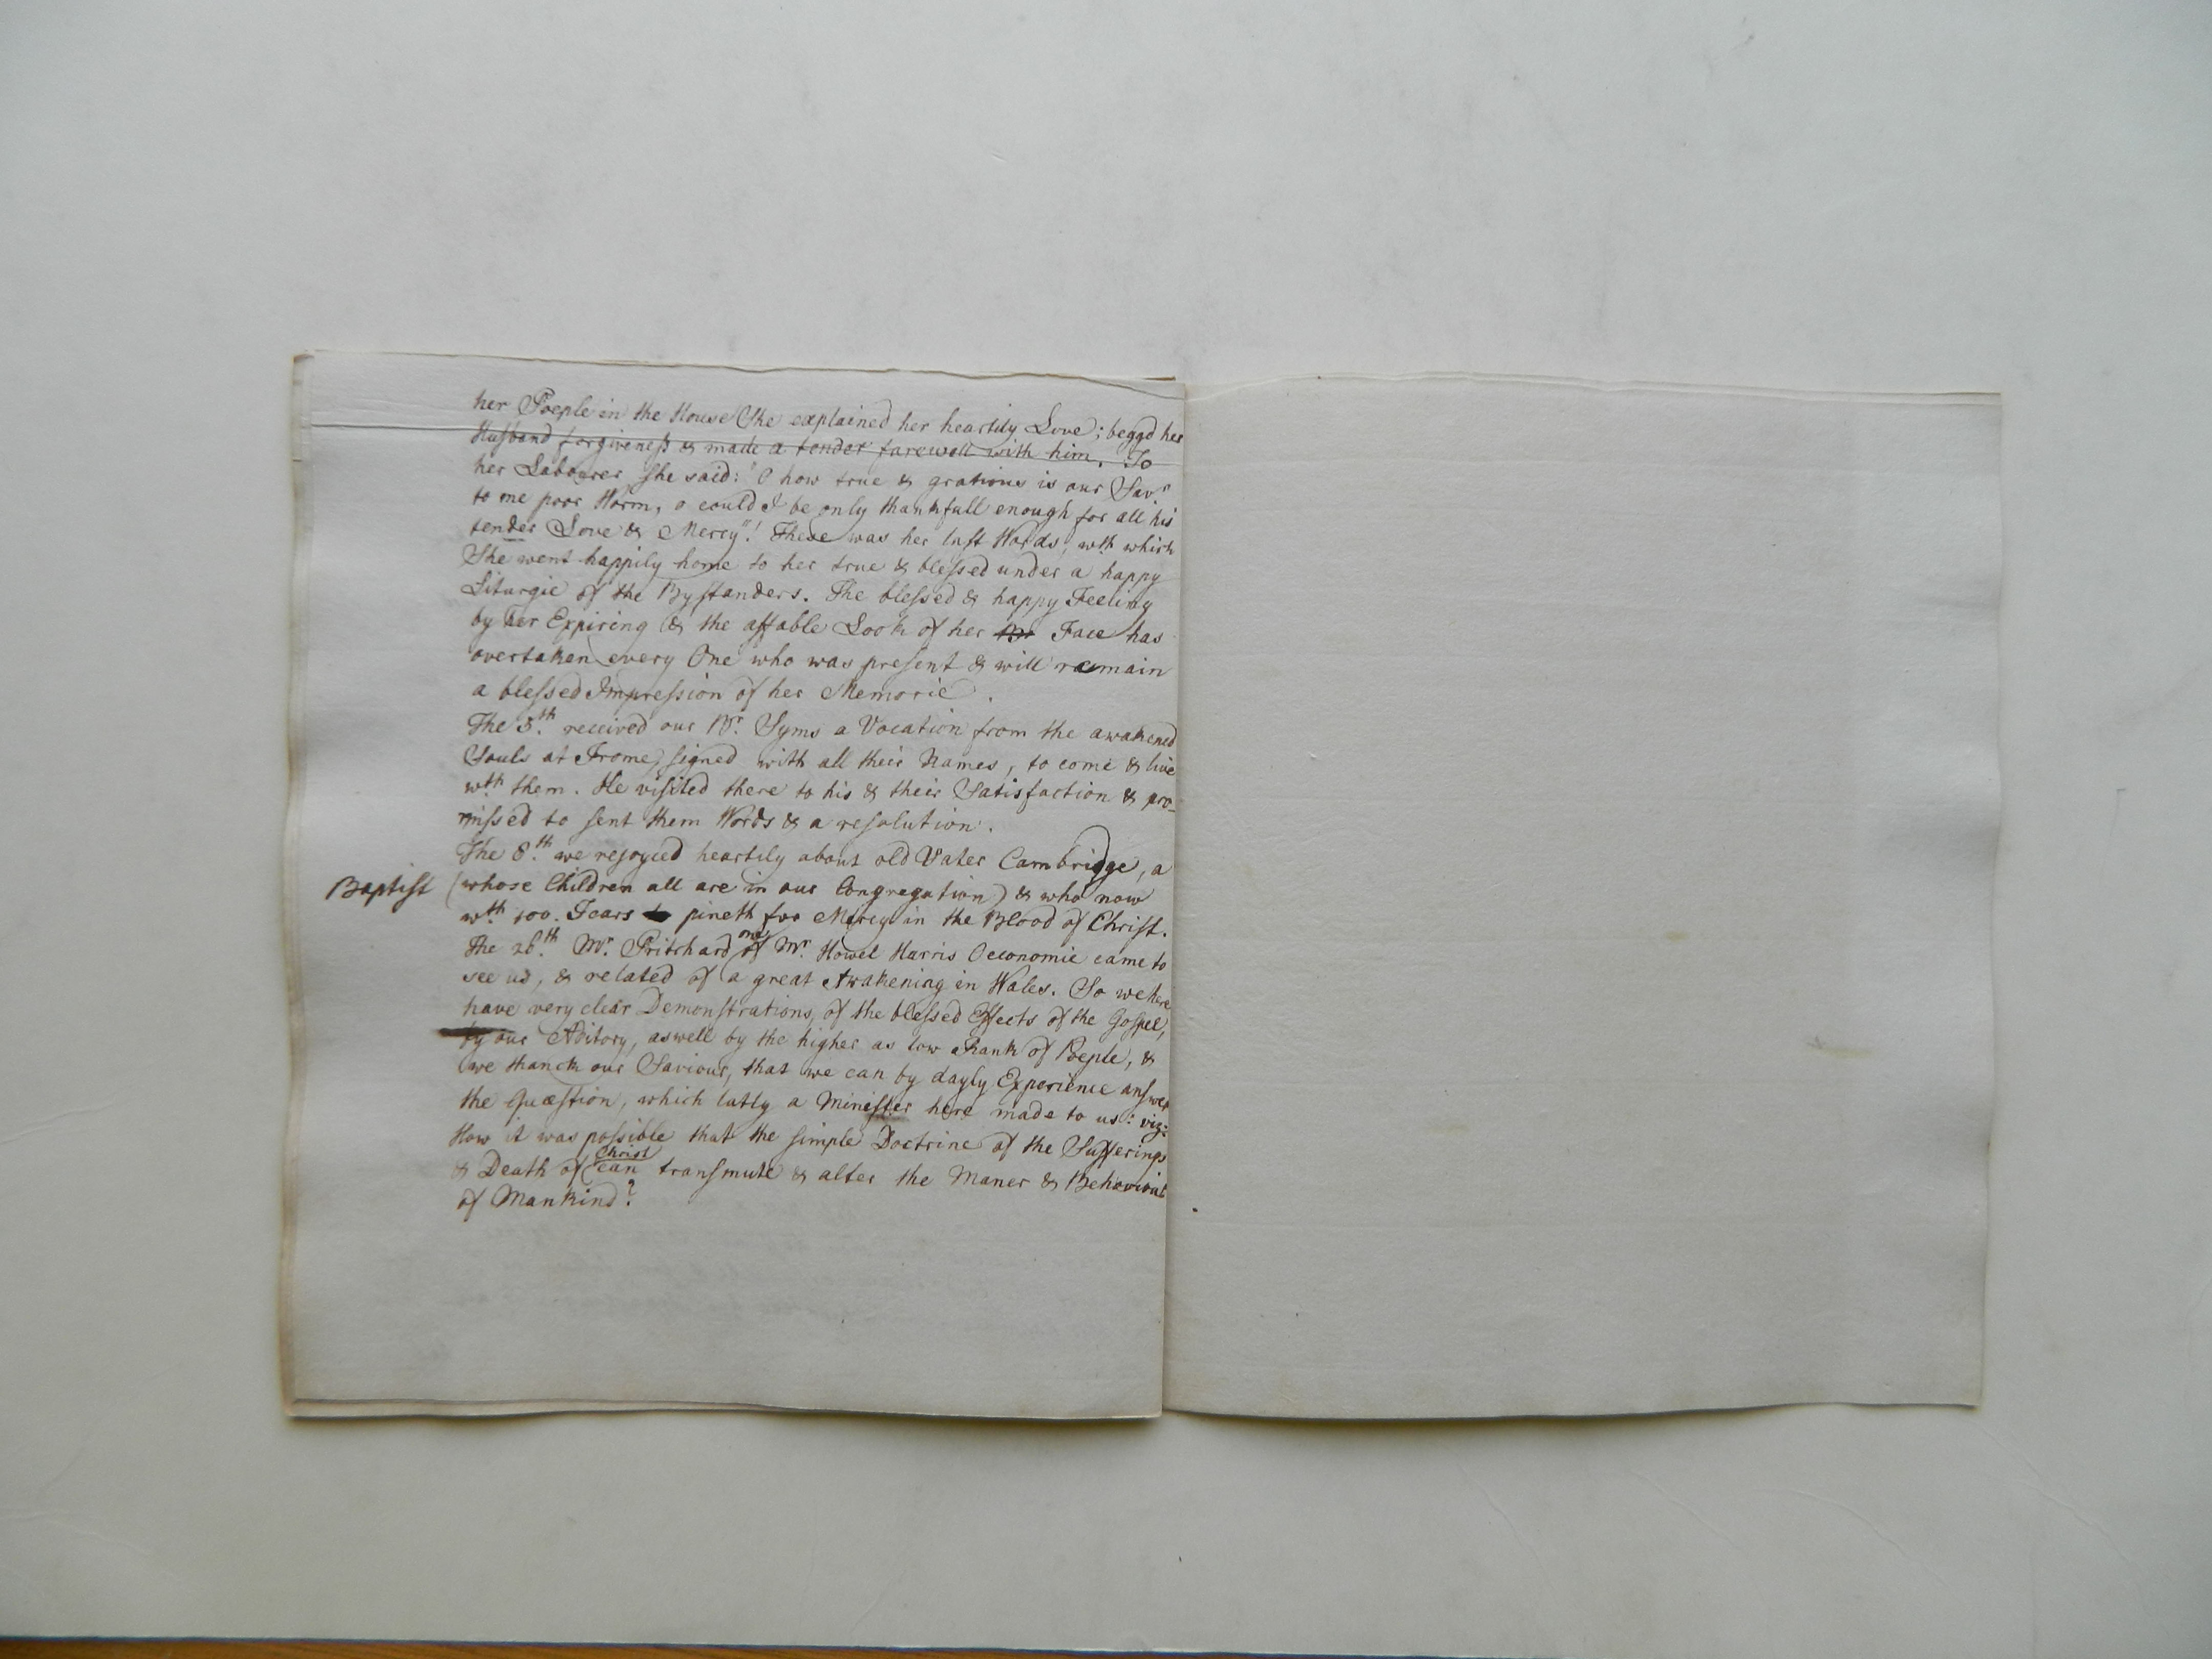 her Poeple in the House She explained her heartily Love; beggd her
Husband forgiveness & made a tender farewell with him. To
her Labourer she said: "O how true & gratious is our Savr
to me poor Worm, o could I be only thankfull enough for all his
tender Love & Mercy"! These was her last Words, wth which
She went happily home to her true & blessed under a happy
Liturgie of the Bystanders. The blessed & happy Feeling
by her Expiring & the affable Look of her Face has
overtaken every One who was present & will remain
a blessed Impression of her Memorie.
The 5th received our Br. Syms a Vocation from the awakened
Souls at Frome, signed with all their Names, to come & live
wth them. He visited there to his & their Satisfaction & pro-
missed to sent them Words & a resolution.
The 8th we rejoyced heartily about old Vater Cambridge, a
Baptist (whose Children all are in our Congregation) & who now
wth 100. Tears pineth for Mercy in the Blood of Christ.
The 26th Mr. Pritchard one of Mr. Howel Harris Oeconomie came to
see us, & related of a great Awakening in Wales. So we here
have very clear Demonstrations, of the blessed Effects of the Gospel,
by our Aditory, aswell by the higher as low Rank of Poeple, &
we thanck our Saviour, that we can by dayly Experience answer
the Quæstion, which latly a Minister here made to us: viz:
How it was possible that the simple Doctrine of the Sufferings
& Death of Christ can transmute & alter the Maner & Behaviour
of Mankind?